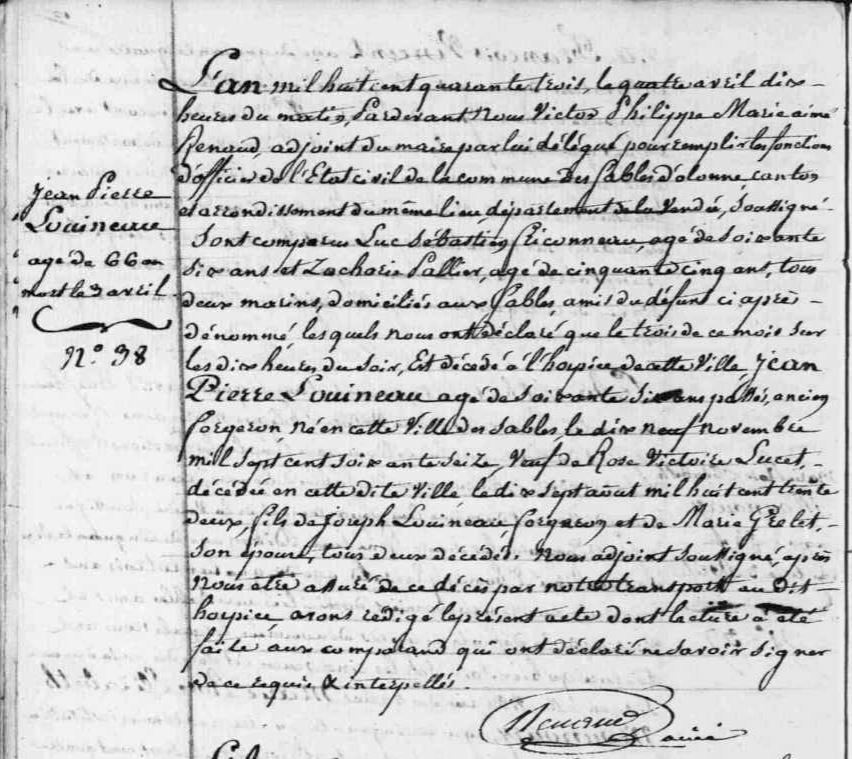 Jean Pierre
Louineau
agé de 66 an
mort le 3 avril
N.o 38
L'an mil huit cent quarante trois, le quatre avril dix
heures du matin, Pardevant Nous Victor Philippe Marie aimé
Renaud, adjoint du maire par lui délégué pour remplir les fonctions
d'officier de l'Etat civil de la commune des Sables d'olonne, canton
et arrondissement du même lieu département de la Vendée, Soussigné
Sont comparus Luc Sébastien Ericonneau, agé de soixante
six ans et Zacharie Pallier, agé de cinquante cinq ans, tous
deux marins, domiciliés aux Sables, amis du défunt ci après
dénommé, lesquels nous ont déclaré que le trois de ce mois sur
les dix heures du soir, Est décédé à l'hospice de cette Ville Jean
Pierre Louineau agé de soixante six ans passés, ancien
forgeron né en cette Ville des Sables, le dix neuf novembre
mil sept cent soixante seize, Veuf de Rose Victoire Lucet,
décédée en cette dite Ville le dix sept août mil huit cent trente
deux, fils de Joseph Louineau, forgeron et de Marie Grelet,
son épouse, tous deux décédés. Nous adjoint soussigné, après
nous être assuré de ce décès par notre transport au dit
hospice avons rédigé le présent acte dont lecture a été
faite aux comparand qui ont déclaré ne savoir signer
de ce requis & interpellés.
Renaud
aimé